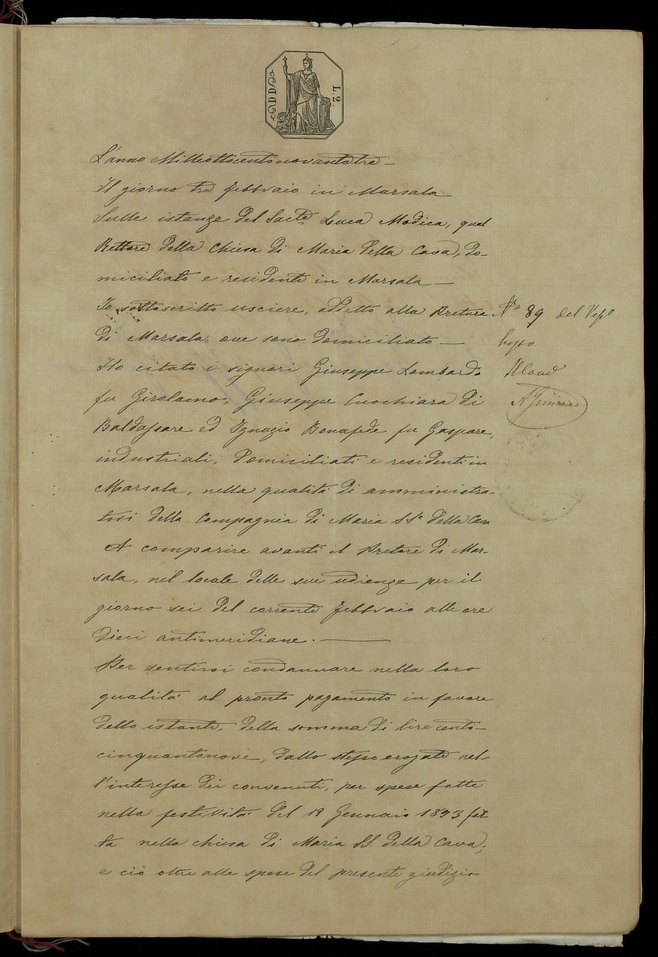 L. 2.
L'anno Milleottocentonovantatre
Il giorno tre febbraio in Marsala
Sulle istanze del Sacte. Luca Modica, qual
Rettore della Chiesa di Maria della Cava, do-
miciliato e residente in Marsala
Io sottoscritto usciere, addetto alla Pretura
di Marsala, ove sono domiciliato
Ho citato i signori Giuseppe Lombardo
fu Girolamo, Giuseppe Cuochiara di
Baldassare ed Ignazio Bonafede fu Gaspare,
industriali, domiciliati e residenti in
Marsala, nella qualità di amministra-
tori della Compagnia di Maria SSa della Cava
A comparire avanti il Pretore di Mar-
sala, nel locale delle sue udienze per il
giorno sei del corrente febbraio alle ore
dieci antimeridiane.
Per sentirsi condannare nella loro
qualità al pronto pagamento in favore
dello istante, della somma di lire cento-
cinquantanove, dallo stesso erogate nel-
l'interesse dei convenuti, per spese fatte
nella festività del 19 Gennaio 1893 fat-
ta nella chiesa di Maria SS. della Cava;
e ciò oltre alle spese del presente giudizio
No 89 del